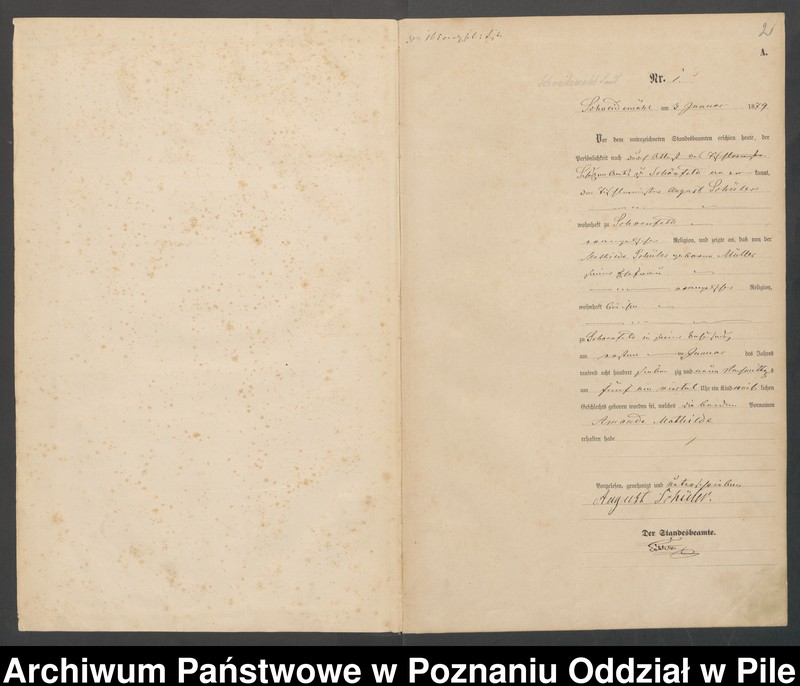 2
A.
Nr. 1.
Schneidemühl am 3 Januar 1879
Vor dem unterzeichneten Standesbeamten erschien heute, der
Persönlichkeit nach durch Attest des
Schulzen Amts zu Schönfeld an er kannt,
der Tischlermeister August Schüler
wohnhaft zu Schoenfeld
evangelischer Religion, und zeigte an, daß von der
Mathilde Schüler geborene Müller
seiner Ehefrau
evangelischer Religion,
wohnhaft bei ihm
zu Schönfeld in seiner Behausung
am ersten Januar des Jahres
tausend acht hundert sieben zig und neun Nachmittags
um fünf ein viertel Uhr ein Kind weib lichen
Geschlechts geboren worden sei, welches die beiden Vornamen
Amanda Mathilde
erhalten habe
Vorgelesen, genehmigt und unterschrieben
August Schüler.
Der Standesbeamte.
Archiwum Państwowe w Poznaniu Oddział w Pile